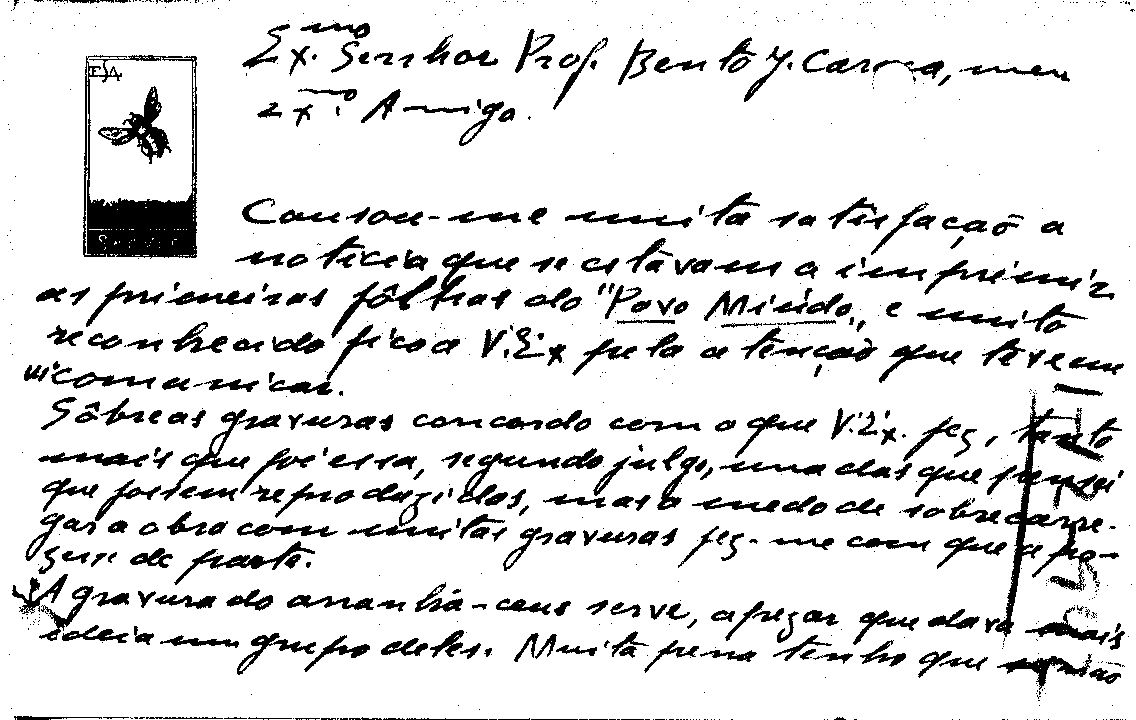 Ex.mo Senhor Prof. Bento J. Caraça, meu
Ex.mo Amigo.
Causou-me muita satisfação a
noticia que se estavam a imprimir
as primeiras fôlhas do "Povo Miúdo", e muito
reconhecido fico a V. Ex pela atenção que teve em
comunicar.
Sôbre as gravuras concordo com o que V. Ex. fez, tanto
mais que foi essa, segundo julgo, uma das que pensei
que fossem reproduzidas, mas o medo de sobrecarre-
gar a obra com muitas gravuras fez-me com que a po-
zesse de parte.
A gravura do arranha-ceus serve, apezar que dava mais
ideia um grupo deles. Muita pena tenho que